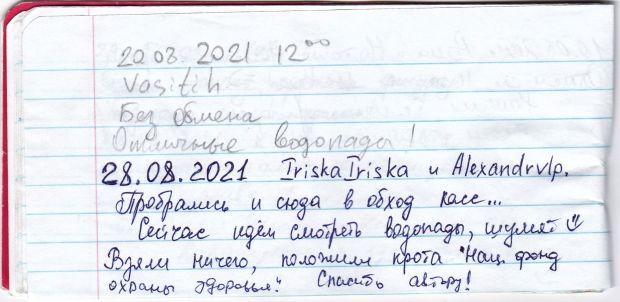 20.08.2021 12⁰⁰
Vasitih
Без обмена
Отличные водопады!
28.08.2021 IriskaIriska и Alexandrvlp.
Пробрались и сюда в обход касс...
Сейчас идём смотреть водопады, шумят☺
Взяли ничего, положили крота "Нац. фонд
охраны здоровья." Спасибо автору!